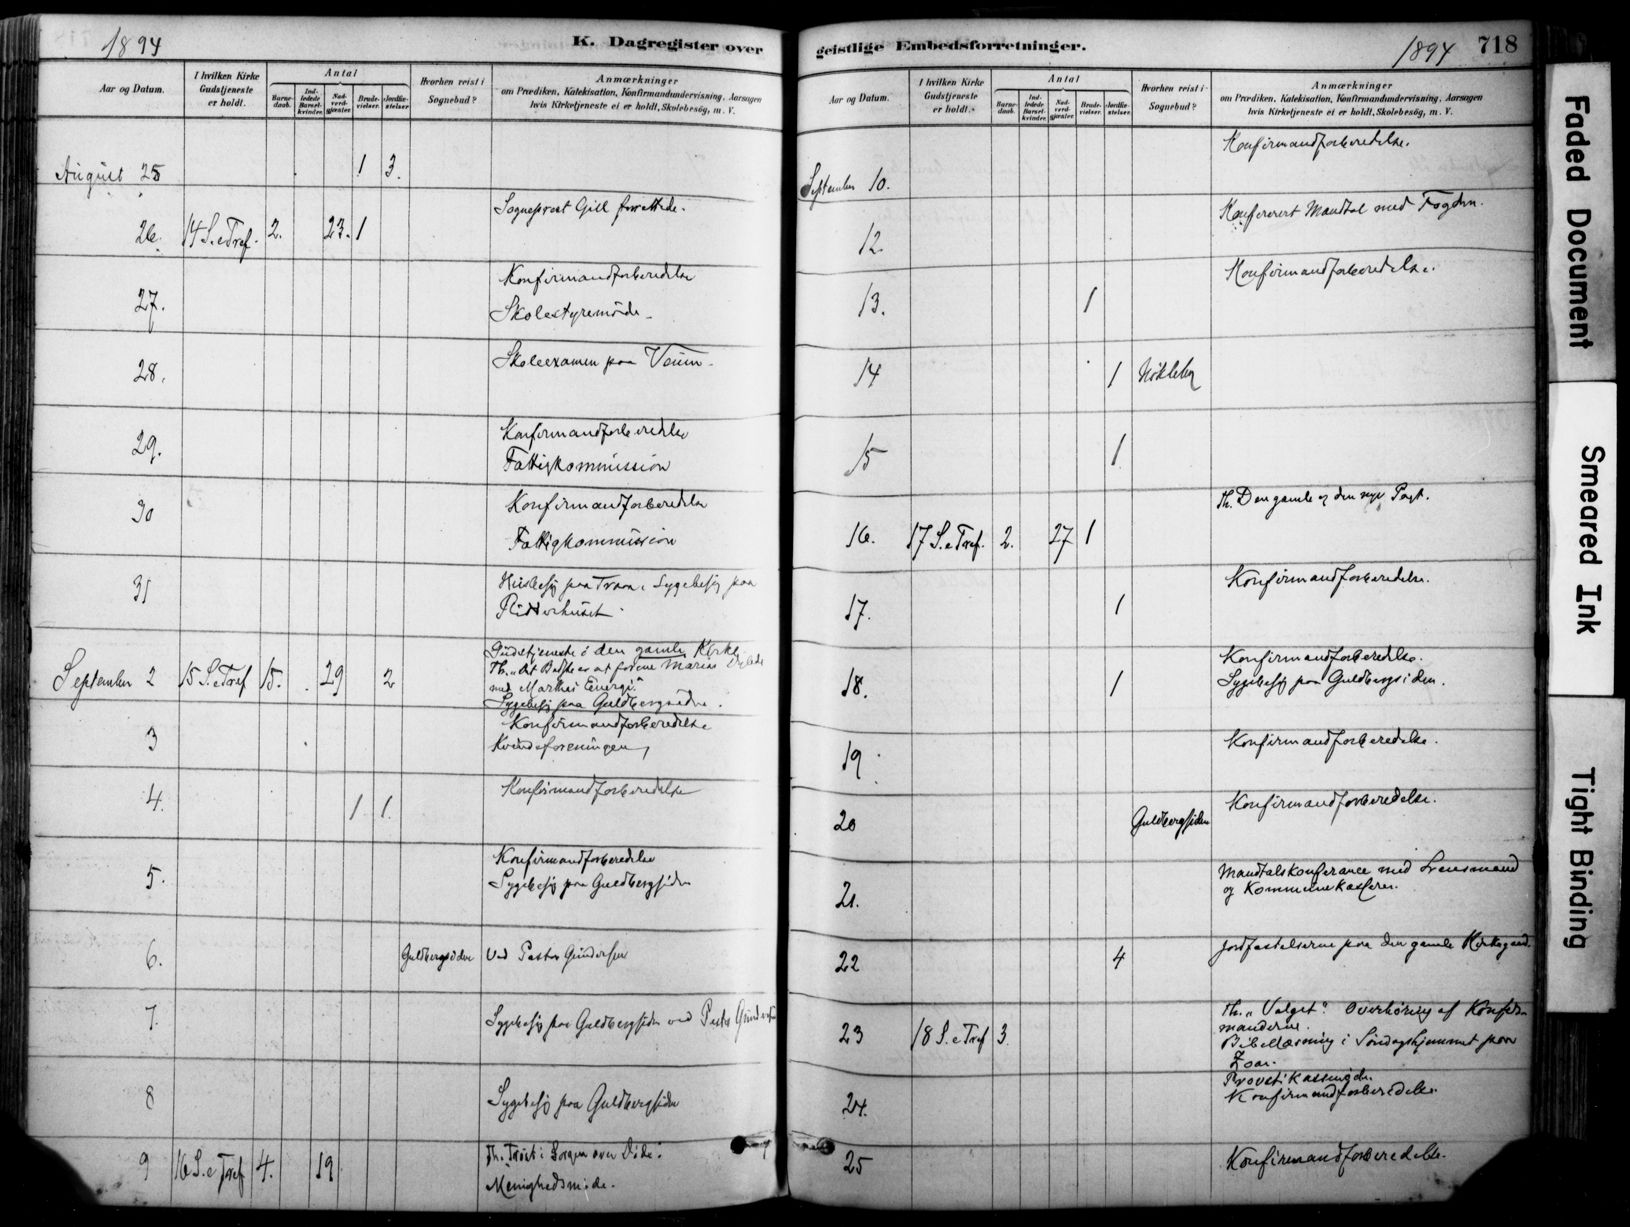 1894
K. Dagregister over
Aar og Datum.
I hvilken Kirke Gudstjeneste er holdt.
Antal
Barnedaab.
Indledede Barselkvinder.
Nadverdgjæster
Brudevielser.
Jordfæstelser
Hvorhen reist i Sognebud?
Anmærkninger
om Prædiken, Katekisation, Konfirmandundervisning, Aarsagen
hvis Kirketjeneste ei er holdt, Skolebesög, m. V.
August 25 1 3.
26. 14 S. e Tref. 2. 23. 1 Sogneprest Gill forrettede.
27. Konfirmandforberedelse
Skolestyremöde
28. Skoleexamen paa Veum.
29. Konfirmandforberedelse
Fattigkommission
30 Konfirmandforberedelse
Fattigkommission
31 Husbesög paa Trara. Sygebesög paa
September 2 15 S. e Tref 15. 29 2 Gudstjeneste i den gamle Kirke
Th. "Det Bedste er at forene Marias
med Marthas Energi."
Sygebesög paa Guldbergsiden.
3 Konfirmandforberedelse
Kvindeforeningen
4. 1. 1. Konfirmandforberedelse
5. Konfirmandforberedelse
Sygebesög paa Guldbergsiden
6. Guldbergsiden Ved Pastor Gundersen
7. Sygebesög paa Guldbergsiden ved Pastor Gundersen
8 Sygebesög paa Guldbergsiden
9 16 S. e Tref 4. 19 Th. Tröst i Sorgen over Döde.
Menighedsmöde.
geistlige Embedsforretninger.
1894
718
Aar og Datum.
I hvilken Kirke Gudstjeneste er holdt.
Antal
Barnedaab.
Indledede Barselkvinder.
Nadverdgjæster
Brudevielser.
Jordfæstelser.
Hvorhen reist i Sognebud?
Anmærkninger
om Prædiken, Katekisation, Konfirmandundervisning, Aarsagen
hvis Kirketjeneste ei er holdt, Skolebesög, m. V.
September 10. Konfirmandforberedelse.
12. Konfereret Mandtal med Fogden.
13. 1 Konfirmandforberedelse.
14 1 Nökleby
15 1
16. 17 S. e Tref. 2. 27 1 Th. Den gamle og den nye Pagt.
17. 1 Konfirmandforberedelse.
18. 1 Konfirmandforberedelse.
Sygebesög paa Guldbergsiden.
19. Konfirmandforberedelse.
20 Guldbergsiden Konfirmandforberedelse.
21. Mandtalskonferance med Lensmand
og Kommunekasserer.
22 4 Jordfæstelserne paa den gamle Kirkegaard.
23 18 S. e Tref 3. Th. "Valget". Overhöring af Konfir
manderne.
Bibellæsning i Söndagshjemmet paa
Zoar.
24. Provstikassemöde.
Konfirmandforberedelse.
25 Konfirmandforberedelse.
Faded Document
Smeared Ink
Tight Binding